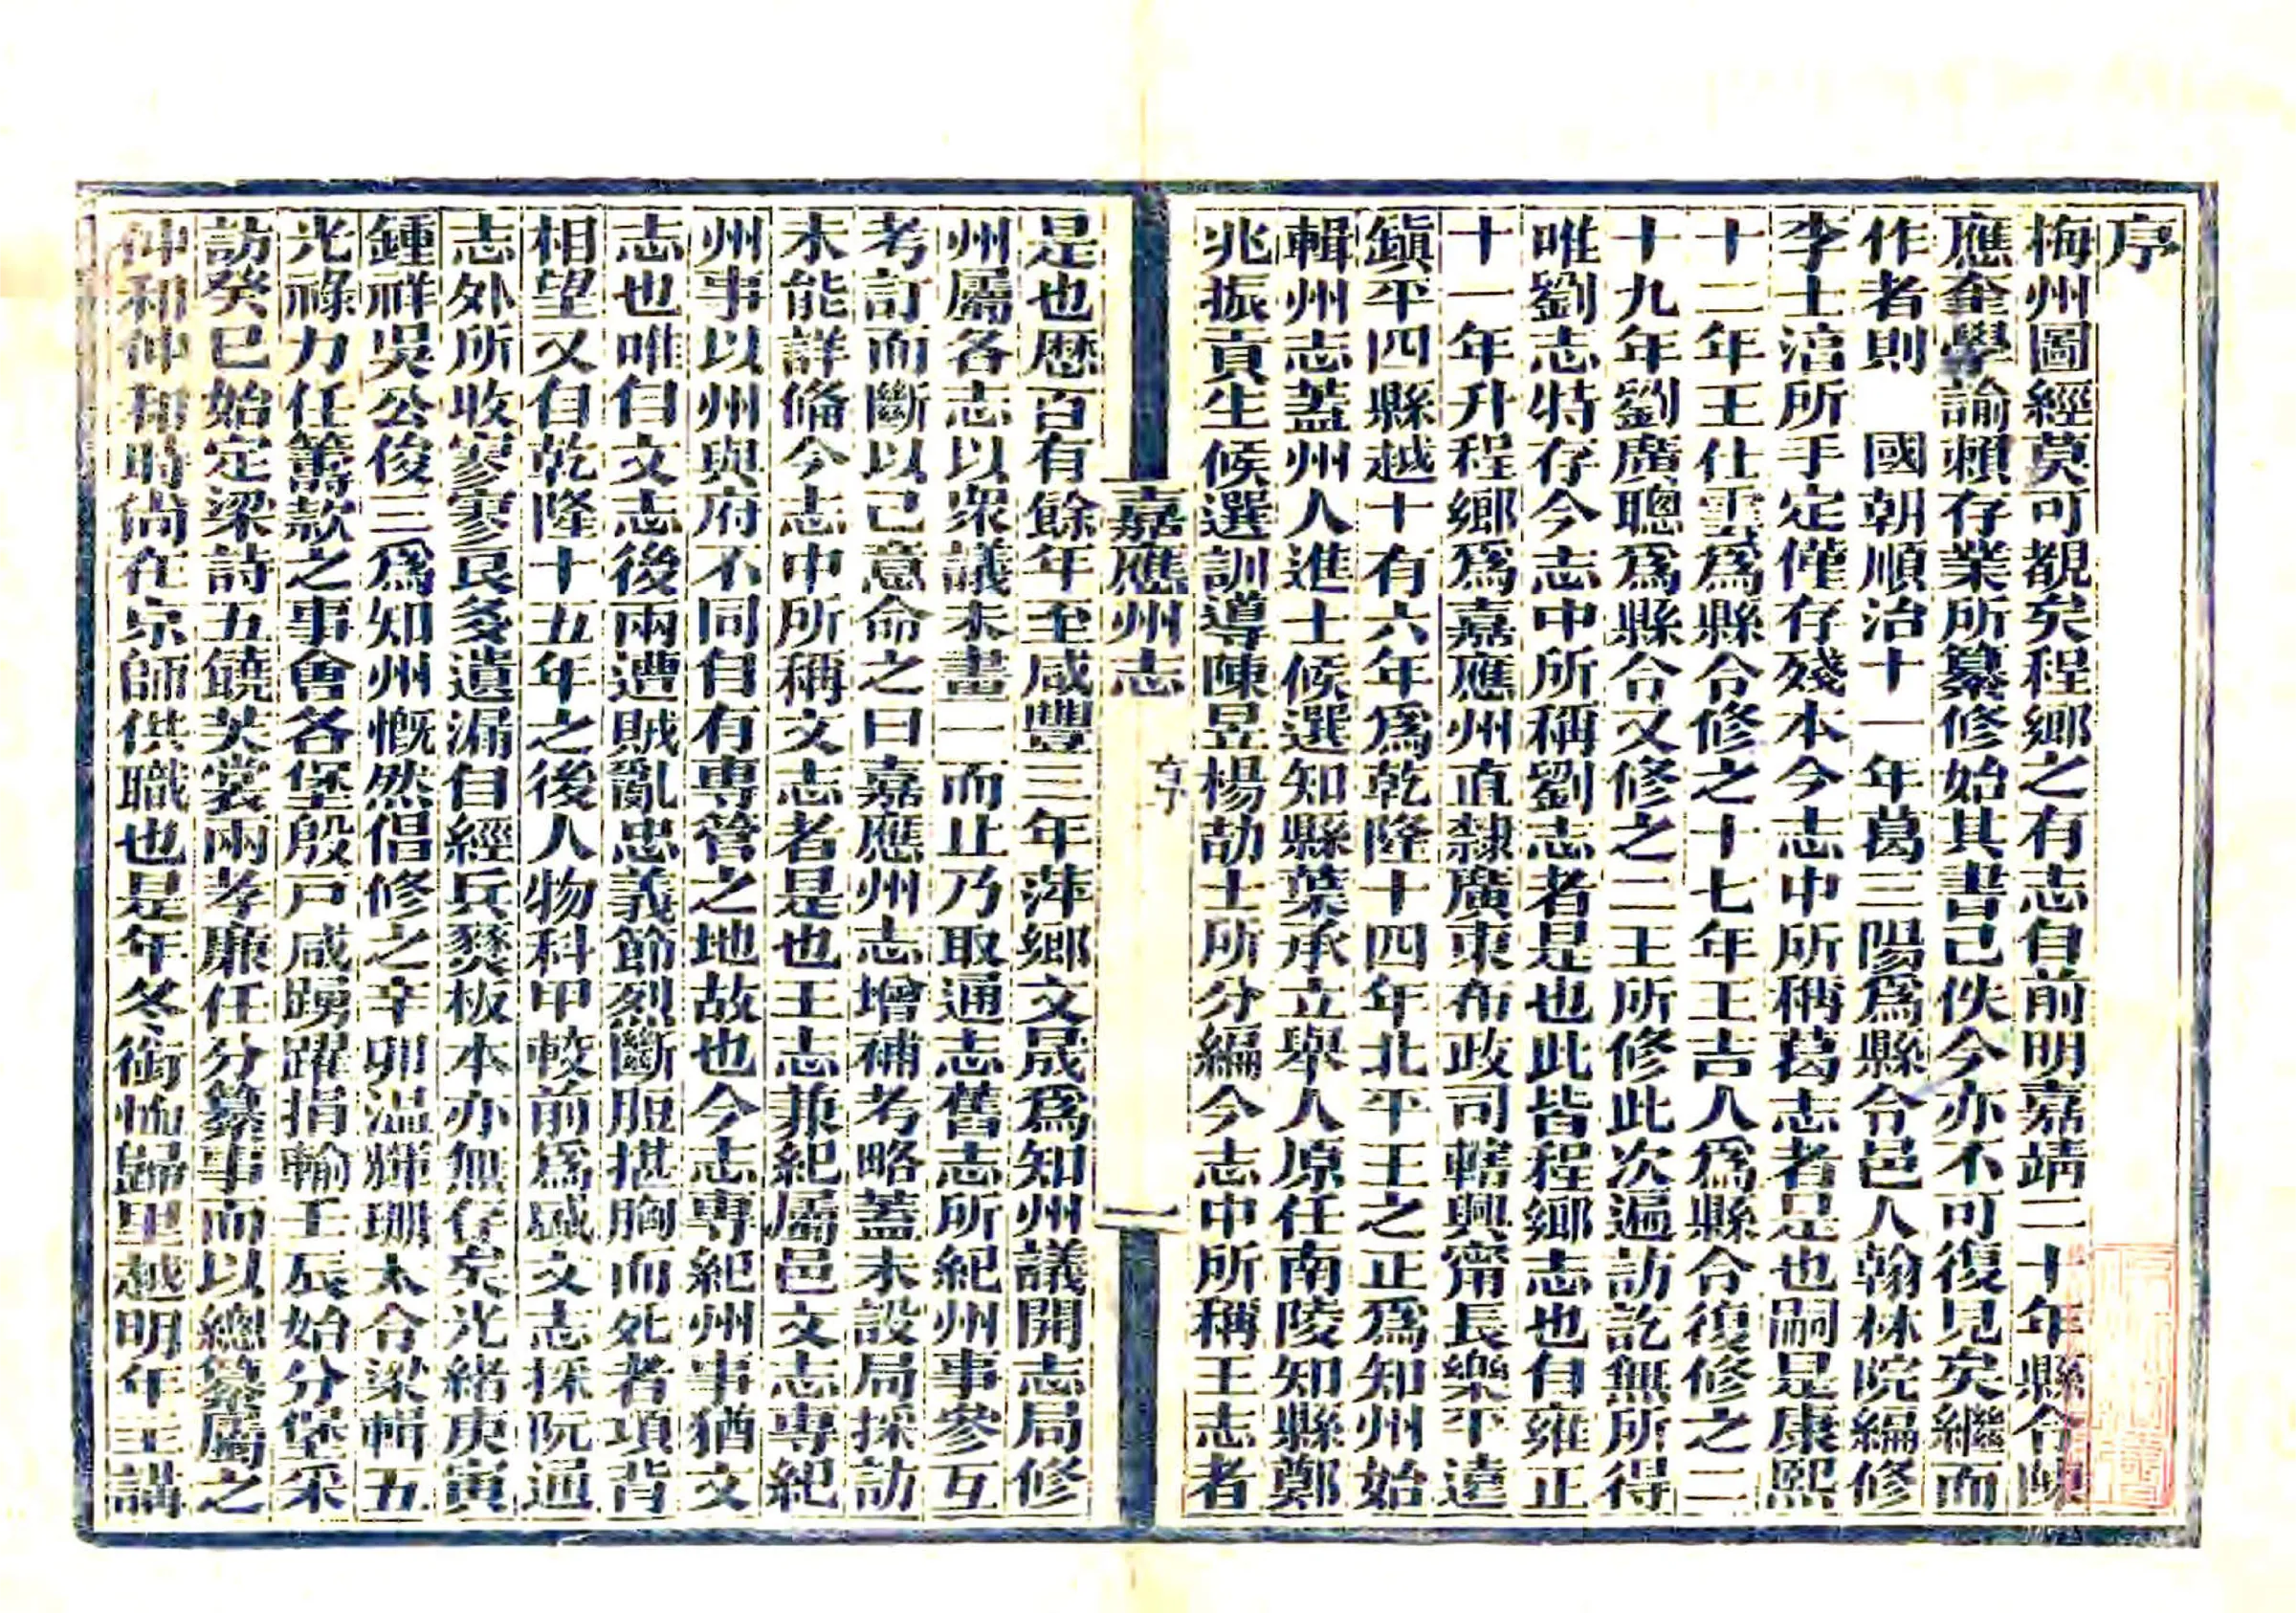 序
梅州圖經莫可覩矣程鄉之有志自前明嘉靖二十年縣令陳
應奎學諭賴存業所纂修始其書已佚今亦不可復見矣繼而
作者則　國朝順治十一年葛三陽爲縣令邑人翰林院編修
李士淯所手定僅存殘本今志中所稱葛志者是也嗣是康熙
十二年王仕雲爲縣令修之十七年王吉人爲縣令復修之二
十九年劉廣聰爲縣令又修之二王所修此次遍訪訖無所得
唯劉志特存今志中所稱劉志者是也此皆程鄉志也自雍正
十一年升程鄉爲嘉應州直隸廣東布政司轄興甯長樂平遠
鎭平四縣越十有六年爲乾隆十四年北平王之正爲知州始
輯州志蓋州人進士候選知縣葉承立舉人原任南陵知縣鄭
兆振貢生候選訓導陳昱楊劼士所分編今志中所稱王志者
嘉應州志　序　一
是也歷百有餘年至咸豐三年萍鄉文晟爲知州議開志局修
州屬各志以衆議未畫一而止乃取通志舊志所紀州事參互
考訂而斷以己意命之曰嘉應州志增補考略蓋未設局採訪
未能詳備今志中所稱文志者是也王志兼紀屬邑文志專紀
州事以州與府不同自有專管之地故也今志專紀州事猶文
志也唯自文志後兩遭賊亂忠義節烈斷脰揕胸而死者項背
相望又自乾隆十五年之後人物科甲較前爲盛文志採阮通
志外所收寥寥良多遺漏自經兵燹板本亦無存矣光緒庚寅
鍾祥吳公俊三爲知州慨然倡修之辛卯溫輝珊太令梁輯五
光祿力任籌款之事會各堡殷戸咸踴躍捐輸壬辰始分堡采
訪癸巳始定梁詩五饒芙裳兩孝廉任分纂事而以總纂屬之
仲和仲和時尙在京師供職也是年冬銜恤歸里越明年主講